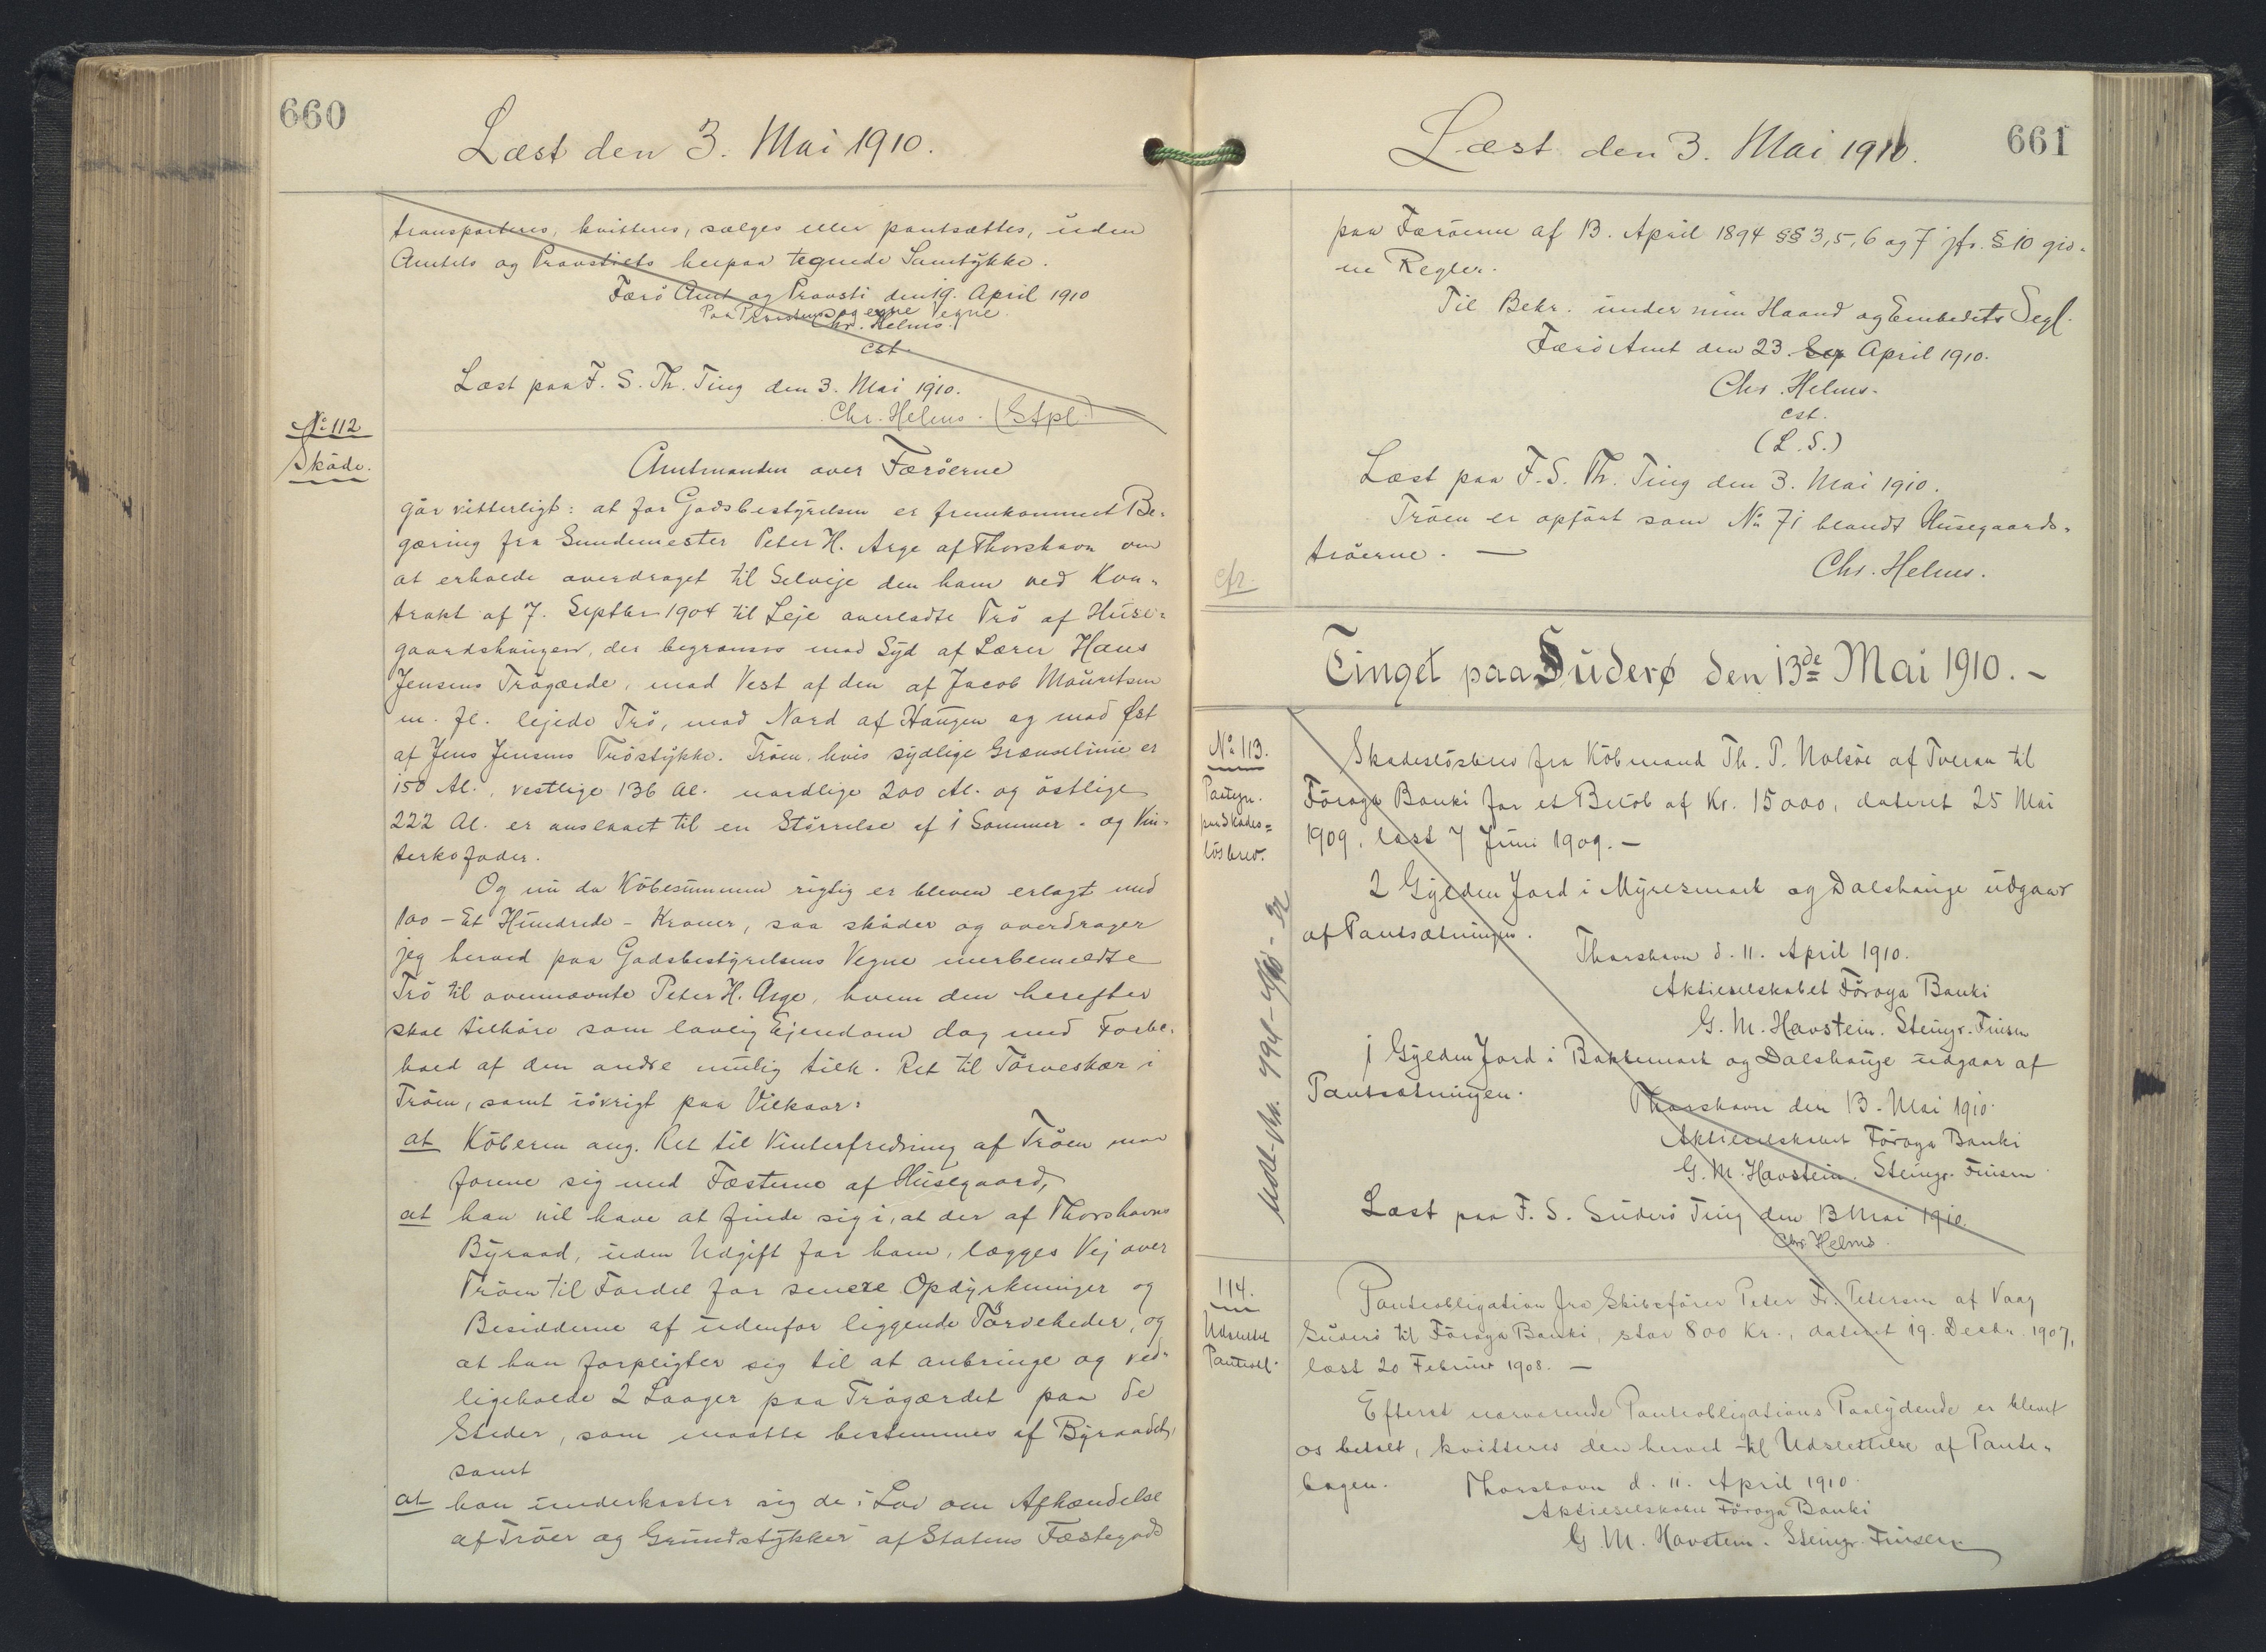 660
Læst den 3. Mai 1910.
transporteres, kvitteres, sælges eller pantsættes, uden
Amtets og Provstiets herpaa tegnede Samtykke.
Færö Amt og Provsti den 19. April 1910
Paa Provstens og egne Vegne.
Chr. Helms.
cst.
Læst paa F. S. Th. Ting den 3. Mai 1910.
Chr. Helms. (Stpl.)
No 112
Skøde.
Amtmanden over Færöerne
gör vitterligt: at for Godsbestyrelsen er fremkommet Be=
gæring fra Bundemester Peter H. Arge af Thorshavn om
at erholde overdraget til Selveje den ham ved Kon=
trakt af 7. Septbr 1904 til Leje overladte Trö af Huse=
gaardshaugen, der begrænses mod Syd af Lærer Hans
Jensens Trögærde, mod Vest af den af Jacob Mouritsen
m. fl. lejede Trö, mod Nord af Haugen og mod Øst
af Jens Jensens Tröstykke. Tröen, hvis sydlige Grænselinie er
150 Al., vestlige 136 Al. nordlige 200 Al. og östlige
222 Al. er anslaaet til en Störrelse af 1 Sommer- og Vin=
terkofoder.
Og nu da Köbesummen rigtig er bleven erlagt med
100 - Et Hundrede - Kroner, saa sköder og overdrager
jeg herved paa Godsbestyrelsens Vegne merbemeldte
Trö til ovennævnte Peter H. Arge, hvem den herefter
skal tilhöre som lovlig Ejendom dog med Forbe=
hold af den andre mulig tilk. Ret til Törveskær i
Tröen, samt iövrigt paa Vilkaar:
at Köberen ang. Ret til Vinterfredning af Tröen maa
forene sig med Fæsterne af Husegaard,
at han vil have at finde sig i, at der af Thorshavns
Byraad, uden Udgift for ham, lægges Vej over
Tröen til Fordel for senere Opdyrkninger og
Besidderne af udenfor liggende Törveheder, og
at han forpligter sig til at anbringe og ved=
ligeholde 2 Laager paa Trögærdet paa de
Steder, som maatte bestemmes af Byraadet,
samt
at han underkaster sig de i Lov om Afhændelse
af Tröer og Grundstykker af Statens Fæstegods
661
Læst den 3. Mai 1910.
paa Færöerne af 13. April 1894 §§ 3, 5, 6 og 7 jfr. § 10 giv=
ne Regler.
Til Bekr. under min Haand og Embedets Segl.
Færö Amt den 23. Sep April 1910.
Chr. Helms.
cst.
(L. S.)
Læst paa F. S. Th. Ting den 3. Mai 1910.
Tröen er opfört som No 71 blandt Husegaards=
tröerne. —
Chr. Helms.
cfr.
Tinget paa Suderø den 13de Mai 1910. -
No 113.
paa Skades=
lösbrev.
Skadeslösbrev fra Köbmand Th. P. Nolsöe af Tveraa til
Föroya Banki for et Belöb af Kr. 15000, dateret 25 Mai
1909, læst 7 Juni 1909. —
2 Gylden Jord i Myresmark og Dalshauge udgaar
af Pantsætningen.
Thorshavn d. 11. April 1910.
Aktieselskabet Föroya Banki
G. M. Havstein. Steingr. Finsen
1 Gylden Jord i Bakkemark og Dalshauge udgaar af
Pantsætningen.
Thorshavn den 13. Mai 1910.
Aktieselskabet Föroya Banki
G. M. Havstein. Steingr. Finsen
Læst paa F. S. Suderö Ting den 13 Mai 1910.
Chr. Helms.
114.
Udslettet
Panteobl.
Panteobligation fra Skibsförer Peter Fr. Petersen af Vaag
Suderö til Föroya Banki, stor 800 Kr., dateret 19. Decbr. 1907,
læst 20 Februar 1908. —
Efterat nærværende Panteobligations Paalydende er blevet
os betalt, kvitteres den herved til Udslettelse af Pante=
bogen.
Thorshavn d. 11. April 1910.
Aktieselskabet Föroya Banki
G. M. Havstein. Steingr. Finsen